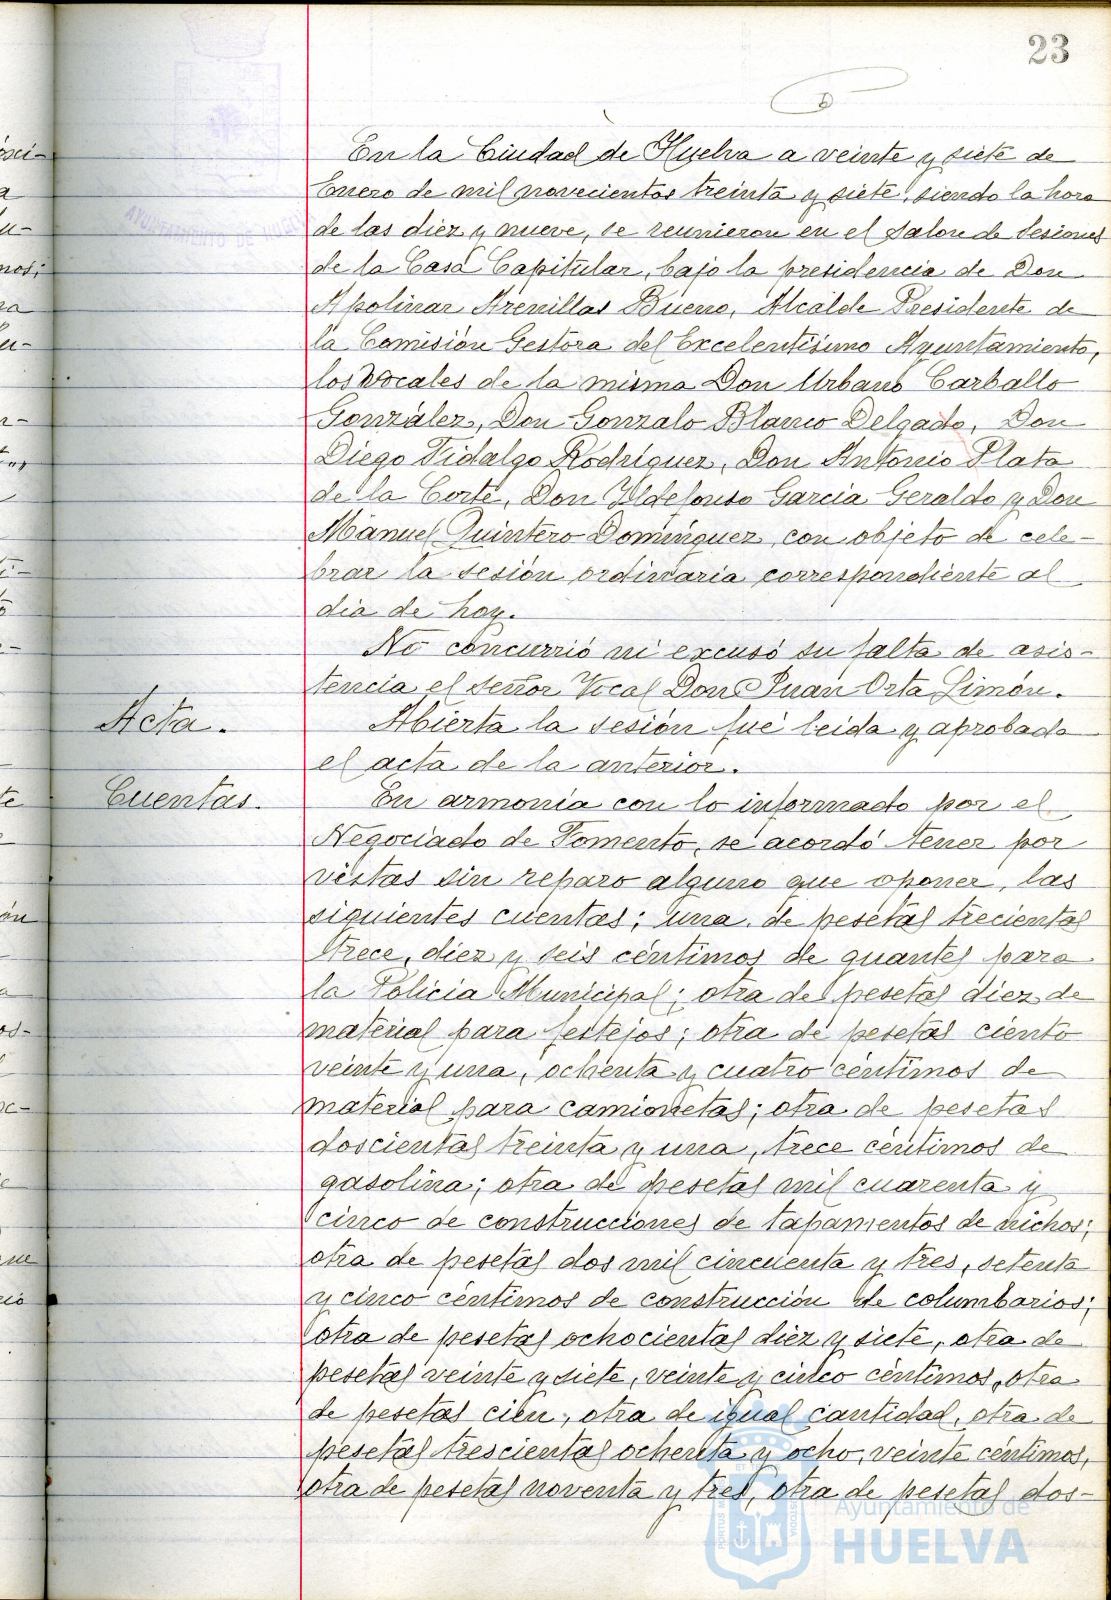 23
En la Ciudad de Huelva a veinte y siete de
Enero de mil novecientos treinta y siete, siendo la hora
de las diez y nueve, se reunieron en el Salon de Sesiones
de la Casa Capitular, bajo la presidencia de Don
Apolinar Arenillas Bueno, Alcalde Presidente de
la Comisión Gestora del Excelentísimo Ayuntamiento,
los Vocales de la misma Don Urbano Carballo
González, Don Gonzalo Blanco Delgado, Don
Diego Fidalgo Rodríguez, Don Antonio Plata
de la Corte, Don Ildefonso García Geraldo y Don
Manuel Quintero Domínguez, con objeto de cele-
brar la sesión ordinaria correspondiente al
dia de hoy.
No concurrió ni excusó su falta de asis-
tencia el señor Vocal Don Juan Orta Limón.
Acta.
Abierta la sesión fué leida y aprobada
el acta de la anterior.
Cuentas.
En armonía con lo informado por el
Negociado de Fomento, se acordó tener por
vistas sin reparo alguno que oponer, las
siguientes cuentas; una de pesetas trecientas
trece, diez y seis céntimos de guantes para
la Policia Municipal; otra de pesetas diez de
material para festejos; otra de pesetas ciento
veinte y una, ochenta y cuatro céntimos de
material para camionetas; otra de pesetas
doscientas treinta y una, trece céntimos de
gasolina; otra de pesetas mil cuarenta y
cinco de construcciones de tapamentos de nichos;
otra de pesetas dos mil cincuenta y tres, setenta
y cinco céntimos de construcción de columbarios;
otra de pesetas ochocientas diez y siete, otra de
pesetas veinte y siete, veinte y cinco céntimos, otra
de pesetas cien, otra de igual cantidad, otra de
pesetas trescientas ochenta y ocho, veinte céntimos,
otra de pesetas noventa y tres, otra de pesetas dos-
AYUNTAMIENTO DE HUELVA
Ayuntamiento de
HUELVA